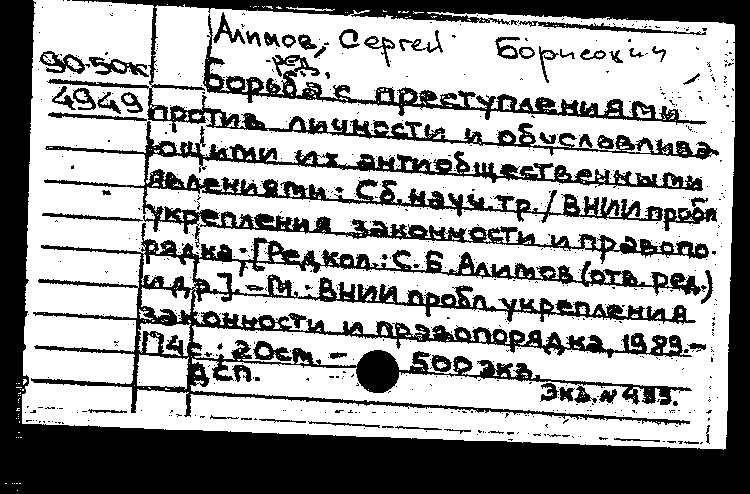 Алимов, Сергей Борисович
ред.
90-50к
4949
Борьба с преступлениями
против личности и обуславлива-
ющими их антиобщественными
явлениями: Сб. науч. тр./ВНИИ пробл.
укрепления законности и правопо-
рядка; [Редкол.: С.Б. Алимов (отв. ред.)
и др.]. - М.: ВНИИ пробл. укрепления
законности и правопорядка, 1989.-
174с.; 20см. - 500 экз.
ДСП.
Экз. №